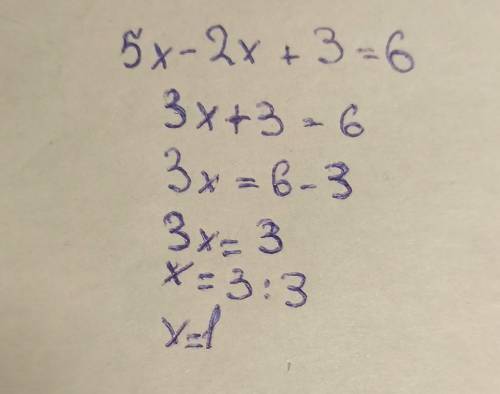 5x-2x+3=6
3x+3-6
3x=6-3
3x=3
x=3:3
x=1